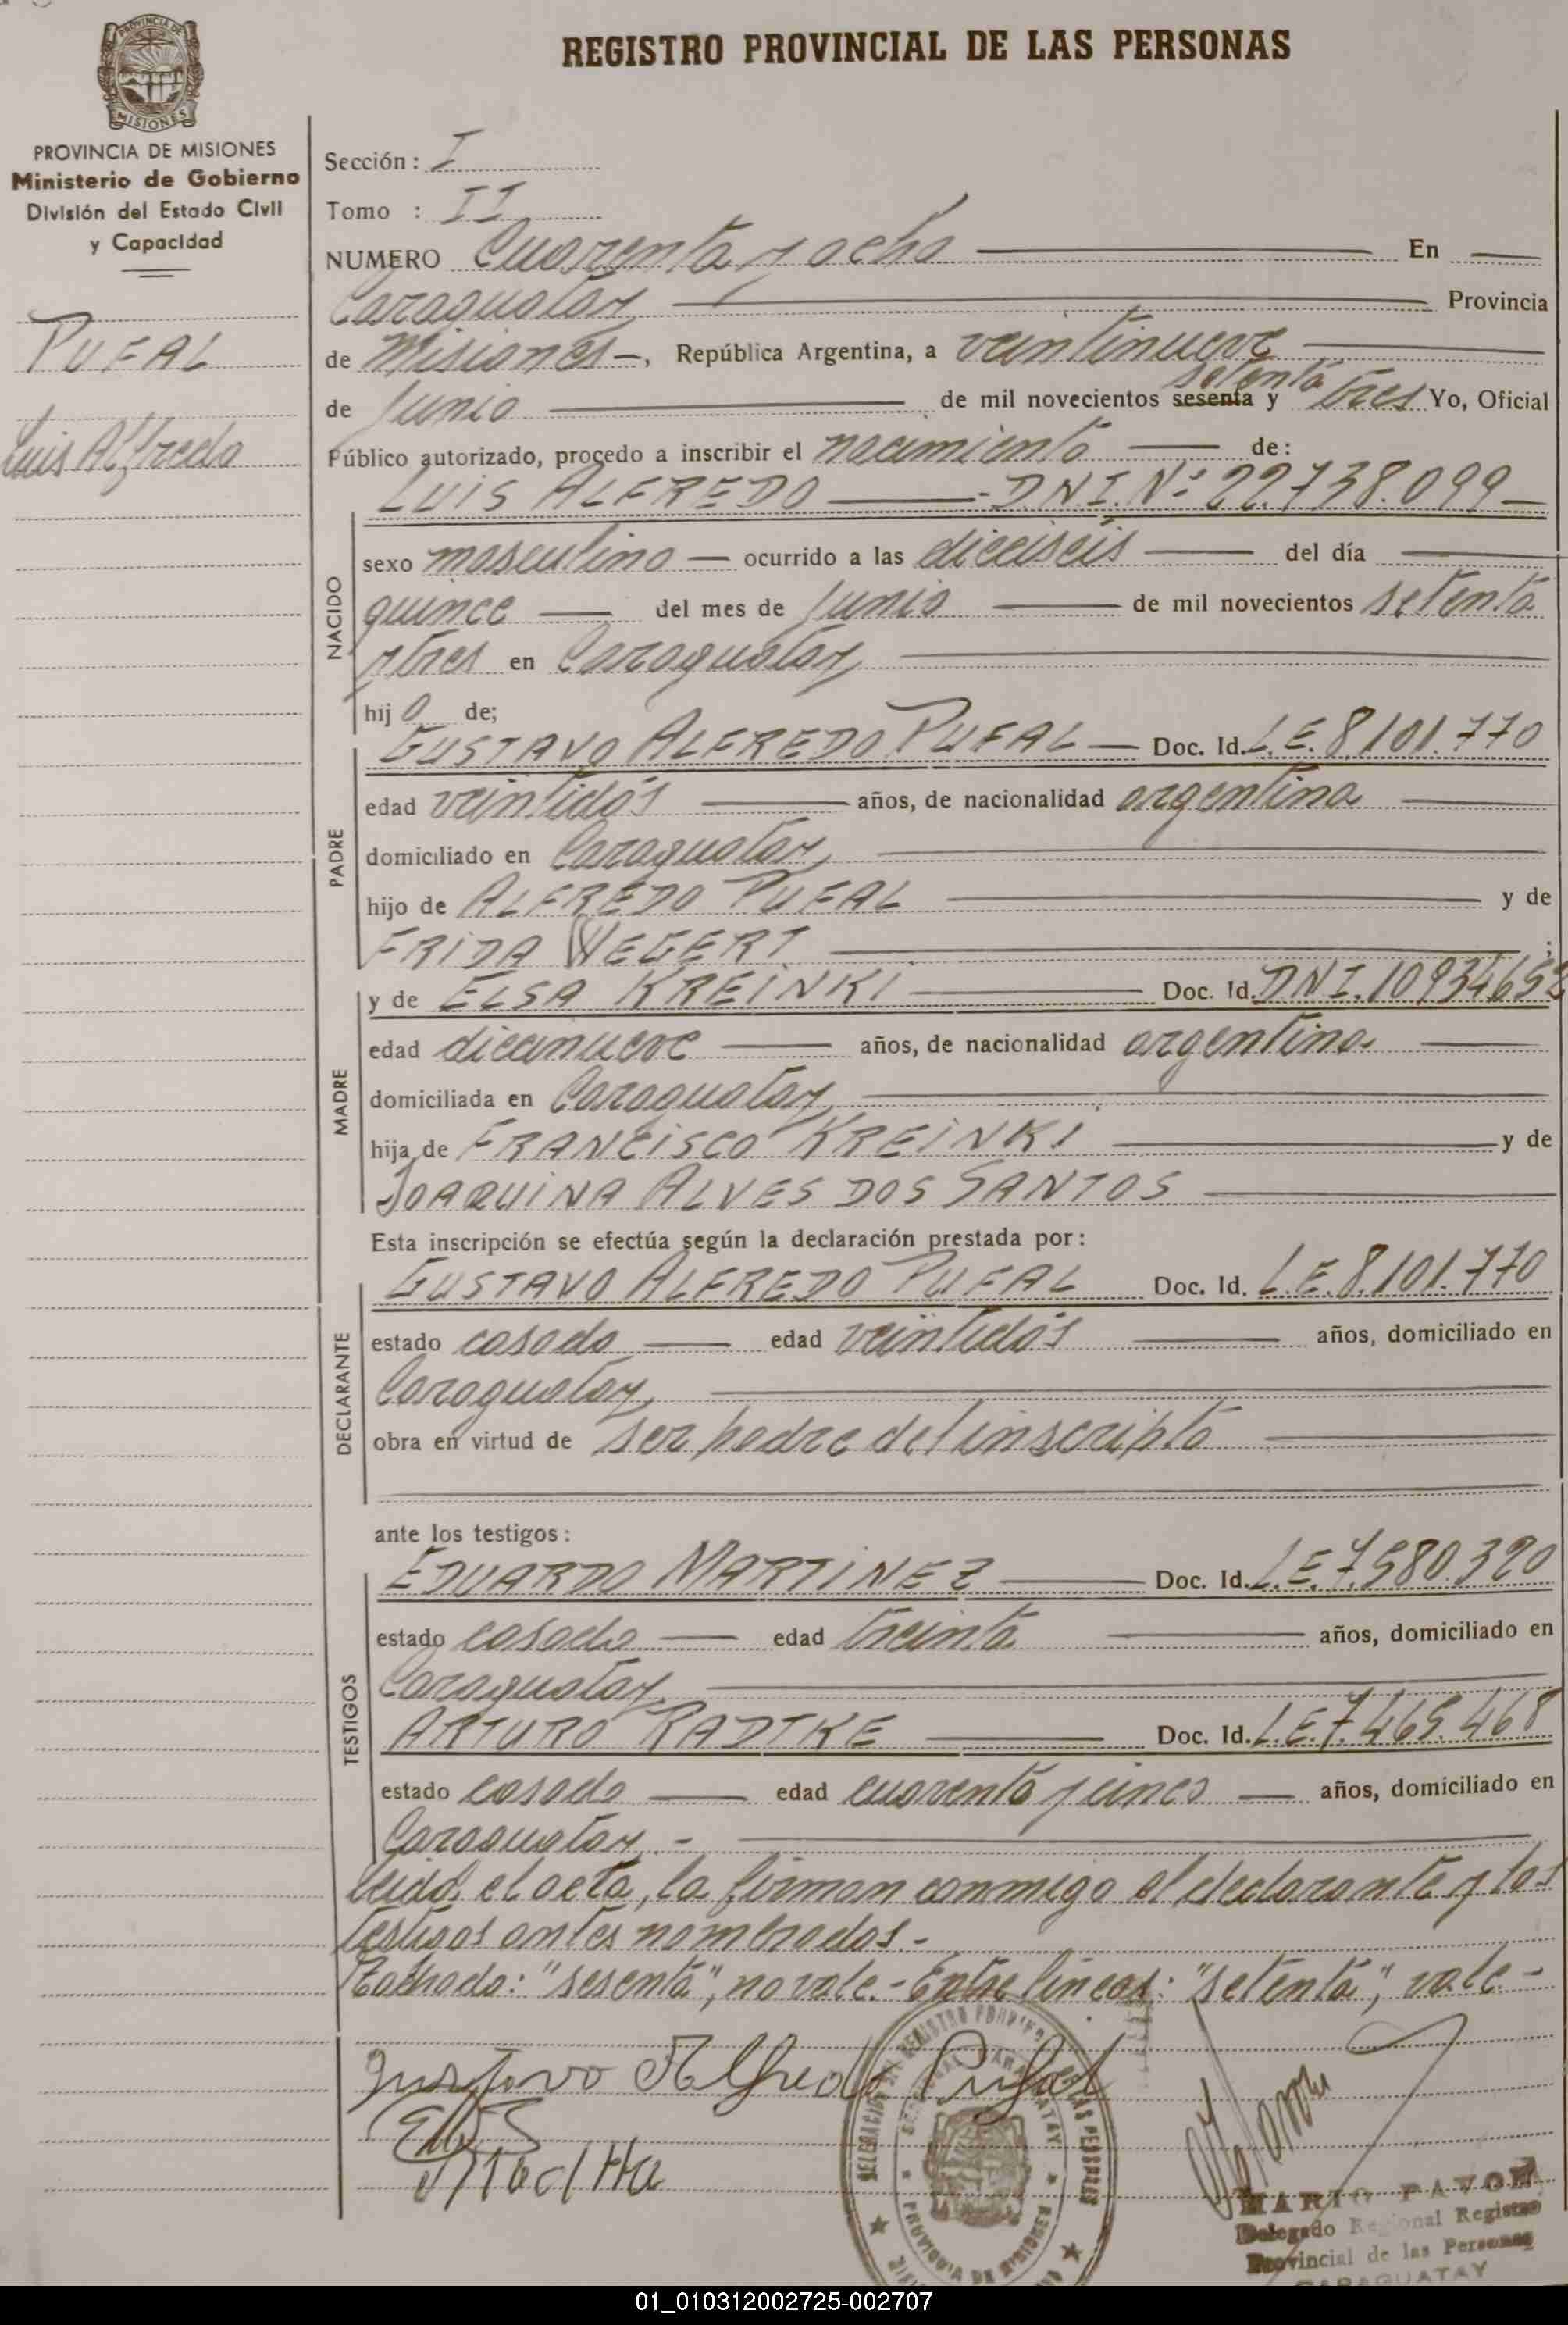 REGISTRO PROVINCIAL DE LAS PERSONAS
MISIONES
PROVINCIA DE MISIONES
Ministerio de Gobierno
División del Estado Civil
y Capacidad
PUFAL
Luis Alfredo
Sección: I
Tomo : II
NUMERO Cuarenta y ocho En
Caraguatay Provincia
de Misiones, República Argentina, a veintinueve
setenta
de Junio de mil novecientos sesenta y tres Yo, Oficial
Público autorizado, procedo a inscribir el nacimiento de:
LUIS ALFREDO - D.N.I. Nº 22.738.099
NACIDO
sexo masculino ocurrido a las dieciseis del día
quince del mes de Junio de mil novecientos setenta
y tres en Caraguatay
hijo de;
PADRE
GUSTAVO ALFREDO PUFAL Doc. Id. L.E. 8.101.770
edad veintidós años, de nacionalidad argentina
domiciliado en Caraguatay
hijo de ALFREDO PUFAL y de
FRIDA WEGERT ;
MADRE
y de ELSA KREINKI Doc. Id. DNI. 10934652
edad diecinueve años, de nacionalidad argentina
domiciliada en Caraguatay
hija de FRANCISCO KREINKI y de
JOAQUINA ALVES DOS SANTOS
Esta inscripción se efectúa según la declaración prestada por:
DECLARANTE
GUSTAVO ALFREDO PUFAL Doc. Id. L.E. 8.101.770
estado casado edad veintidós años, domiciliado en
Caraguatay
obra en virtud de ser padre del inscripto
ante los testigos:
TESTIGOS
EDUARDO MARTINEZ Doc. Id. L.E. 7.580.320
estado casado edad treinta años, domiciliado en
Caraguatay
ARTURO RADTKE Doc. Id. L.E. 7.465.468
estado casado edad cuarenta y cinco años, domiciliado en
Caraguatay.-
Leida el acta, la firman conmigo el declarante y los
testigos antes nombrados.-
Tachado: "sesenta", no vale.- Entre líneas: "setenta", vale.-
Gustavo Alfredo Pufal
PROVINCIA DE MISIONES
MARIO PAVON
Delegado Regional Registro
Provincial de las Personas
CARAGUATAY
01_010312002725-002707